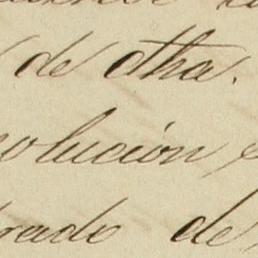 de dha.
olución
rado de